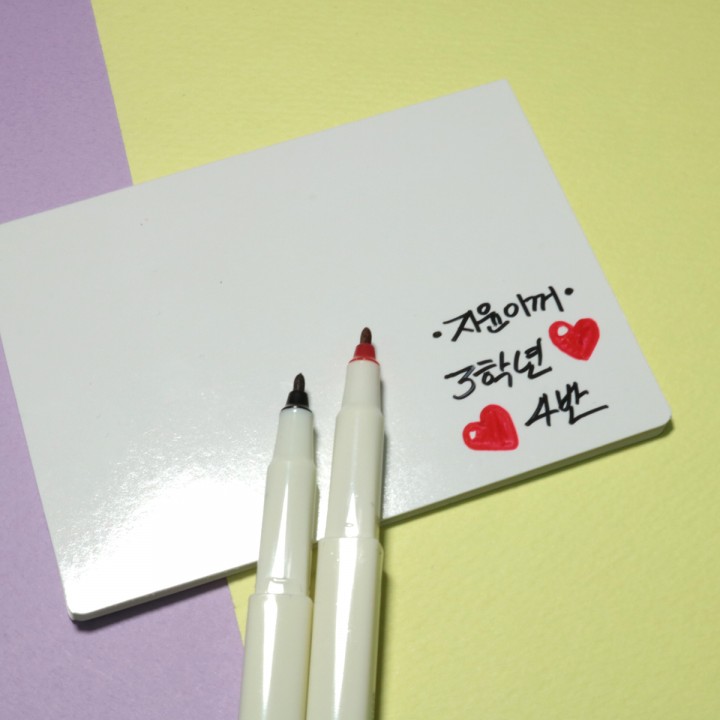 ·지윤이꺼·
3학년
4반